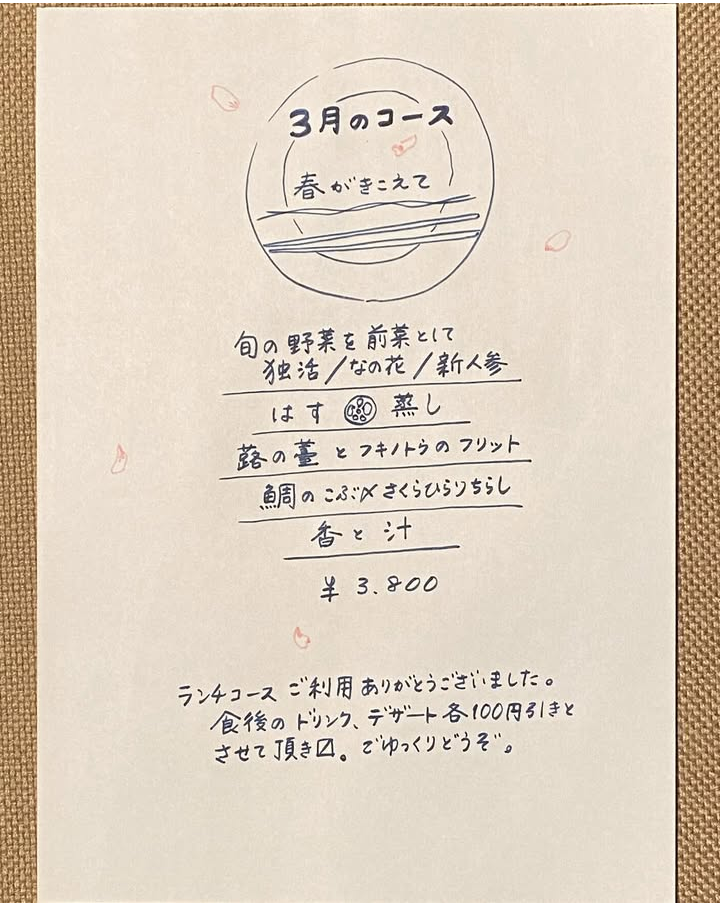 3月のコース
春がきこえて
旬の野菜を前菜として
独活/なの花/新人参
はす 蒸し
蕗の薹とフキノトウのフリット
鯛のこぶ〆さくらひらりちらし
香と汁
¥3.800
ランチコースご利用ありがとうございました。
食後のドリンク、デザート各100円引きと
させて頂き〼。ごゆっくりどうぞ。